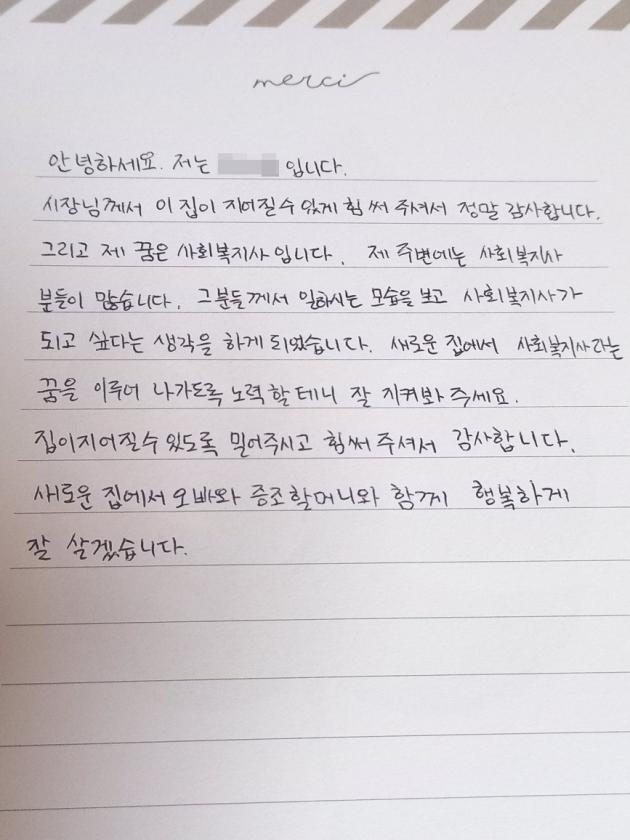 merci
안녕하세요. 저는 입니다.
시장님께서 이 집이 지어질수 있게 힘써 주셔서 정말 감사합니다.
그리고 제 꿈은 사회복지사입니다. 제 주변에는 사회복지사
분들이 많습니다. 그분들께서 일하시는 모습을 보고 사회복지사가
되고 싶다는 생각을 하게 되었습니다. 새로운 집에서 사회복지사라는
꿈을 이루어 나가도록 노력할테니 잘 지켜봐 주세요.
집이지어질수 있도록 밀어주시고 힘써 주셔서 감사합니다.
새로운 집에서 오빠와 증조할머니와 함께 행복하게
잘 살겠습니다.